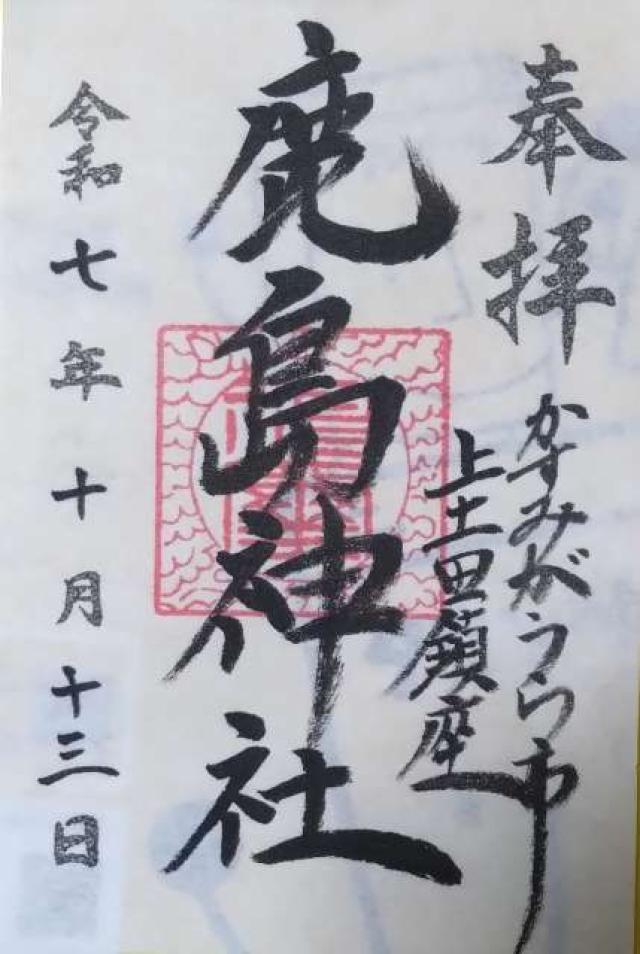 奉拝
かすみがうら市
上土田鎮座
鹿島神社
令和七年十月十三日